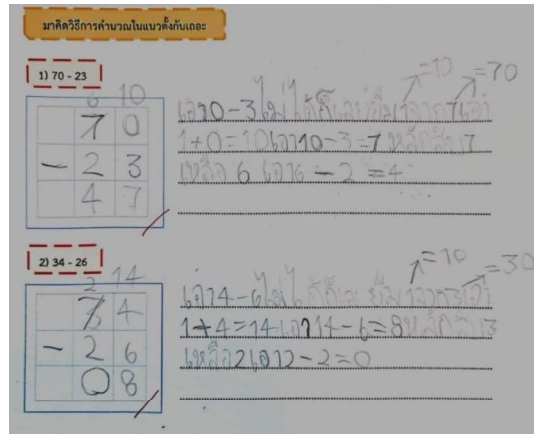 มาคิดวิธีการคำนวณในแนวตั้งกันเถอะ
1) 70 - 23
6 10
7 0
- 2 3
4 7
=10 =70
เอา0-3ไม่ได้ก็เลยยืม1จาก7เอา
1+0=10เอา10-3=7 หลักสิบ7
เหลือ 6 เอา6-2=4
2) 34 - 26
2 14
3 4
- 2 6
0 8
=10 =30
เอา4-6ไม่ได้ก็เลยยืม1จาก3เอา
1+4=14เอา14-6=8หลักสิบ3
เหลือ2เอา2-2=0